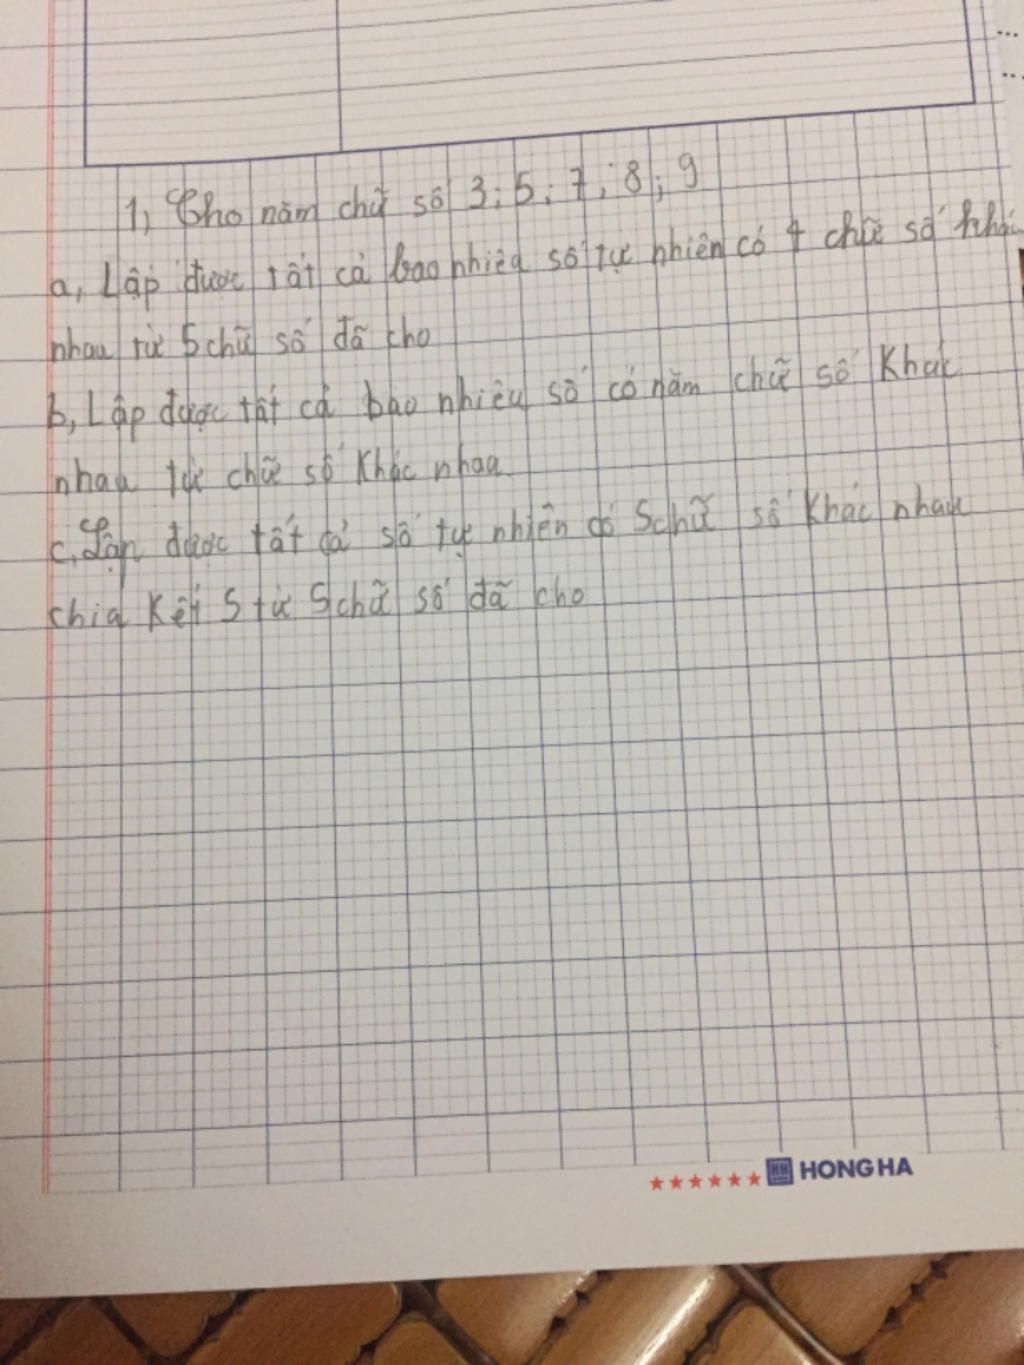 1, Cho năm chữ số 3; 5; 7; 8; 9
a, Lập được tất cả bao nhiêu số tự nhiên có 4 chữ số khác
nhau từ 5 chữ số đã cho
b, Lập được tất cả bao nhiêu số có năm chữ số khác
nhau từ chữ số khác nhau
c, Lập được tất cả số tự nhiên có 5 chữ số khác nhau
chia kết 5 từ 5 chữ số đã cho
HONG HA